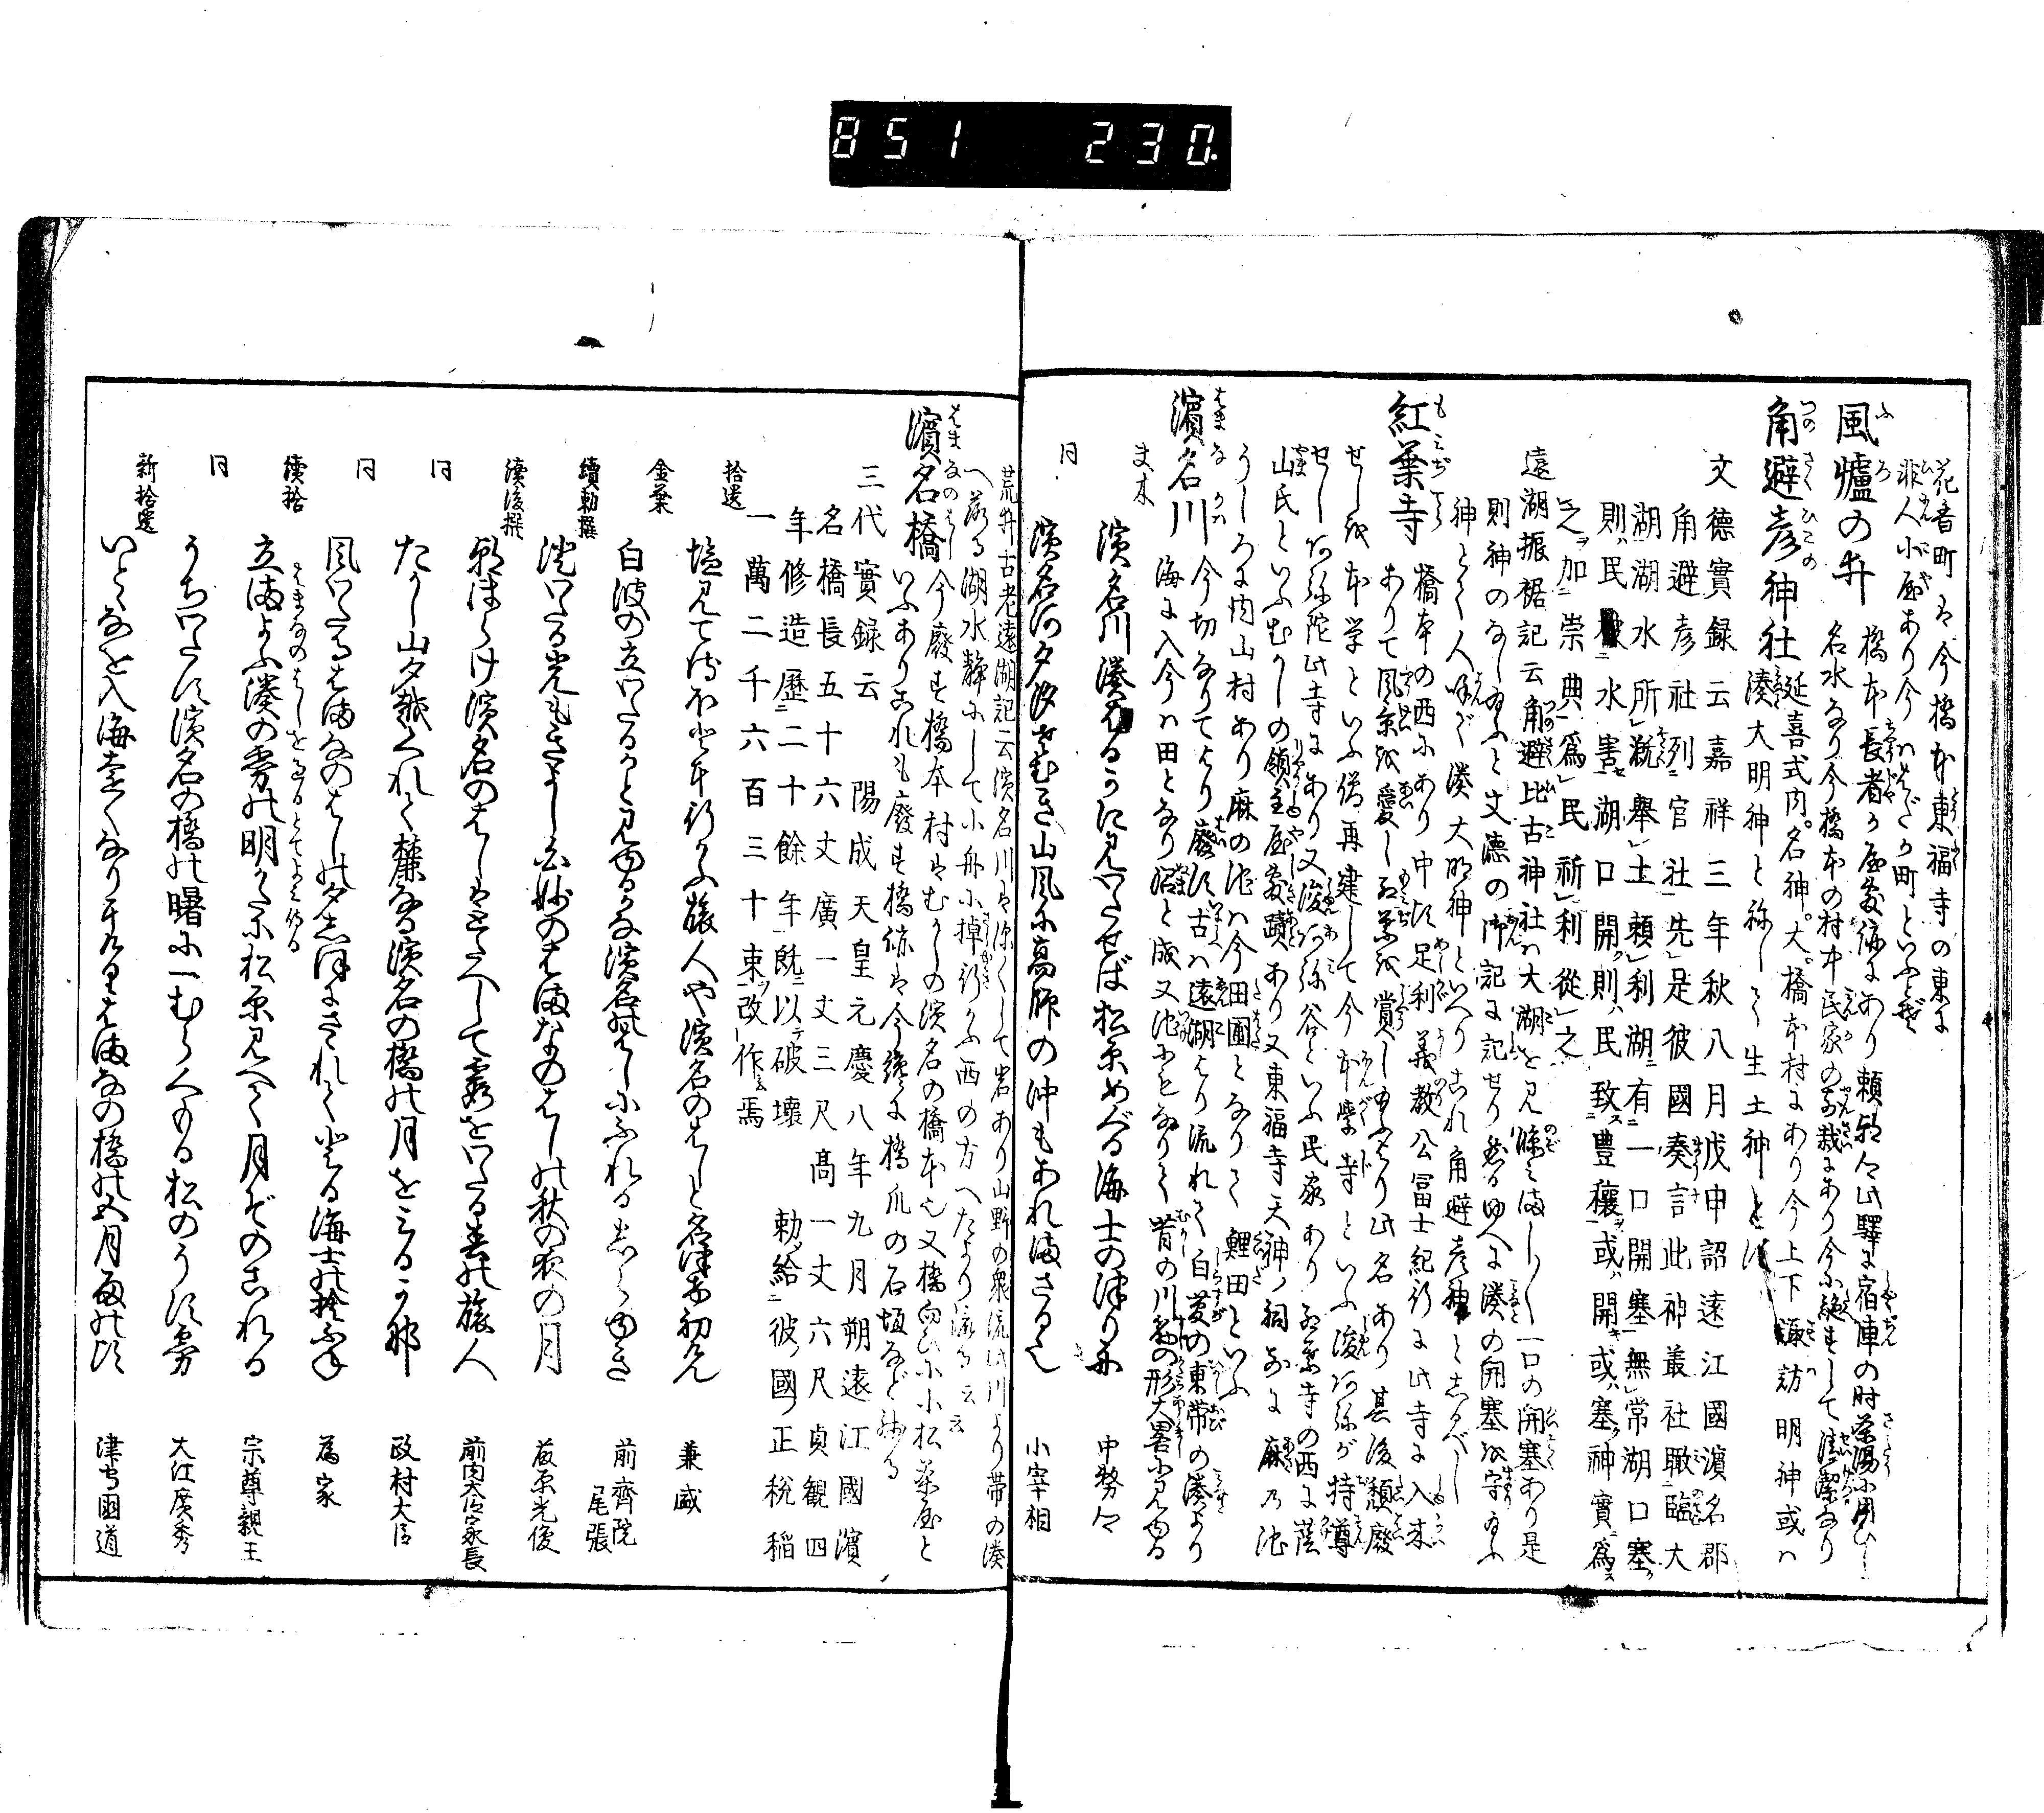 851 230.
花香町は今橋本東福寺の東に
非人小屋あり今ははだか町といふとぞ
風爐の井 橋本長者が屋敷跡にあり頼朝公此驛に宿陣の時茶湯に用ひし
名水なり今橋本の村中民家の前栽にあり今に絶ずして清潔なり
角避彦神社 延喜式内。名神。大。橋本村にあり今上下諏訪明神或は
湊大明神と称して生土神とす
文徳實録云嘉祥三年秋八月戊申詔遠江國濱名郡
角避彦社列官社先是彼國奏言此神叢社瞰臨大
湖湖水所漑擧土頼利湖有一口開塞無常湖口塞
則民被水害湖口開則民致豊穰或開或塞神實爲
之加崇典爲民祈利從之
遠湖振裾記云角避比古神社は大湖を見臨みまし〳〵一口の開塞あり是
則神のなし給ふと文徳の御記に記せり然るゆへに湊の開塞を守給ふ
神とて人呼んで湊大明神といへりこれ角避彦神と志るべし
紅葉寺 橋本の西にあり中比足利義教公冨士紀行に此寺に入来
ありて風景を愛し紅葉を賞し給ふより此名あり其後頽廢
せしを本学といふ僧再建して今本學寺といふ
山氏といふむかしの領主屋敷蹟あり又東福寺天神ノ祠前に麻乃池
うしろに内山村あり麻の池は今田圃となりて鯉田といふ
濱名川 今切なりてより廢す古は遠湖より流れて白菅の東帯の湊より
海に入今は田となり沼と成又池ともなりて昔の川筋の形大畧に見ゆる
夫木
濱名川湊はるかに見わたせば松原めぐる海士の津り舟 中務々
同
濱名河夕汐さむき山風に高師の沖もあれまさる也 小宰相
荒井古老遠湖記云濱名川は深くして岩あり山野の衆流此川より帯の湊
へ落る湖水静にして小舟に棹行かふ西の方へたより流る云云
濱名橋 今廢す橋本村はむかしの濱名の橋本也又橋向ひに小松茶屋と
いふありこれも廢す橋跡は今纔に橋爪の石垣など残る
三代實録云 陽成天皇元慶八年九月朔遠江國濱
名橋長五十六丈廣一丈三尺髙一丈六尺貞観四
年修造歷二十餘年既以破壊 勅給彼國正税稲
一萬二千六百三十束改作焉
拾遺
塩みてるほどに行かふ旅人や濱名のはしと名津け初けん 兼盛
金葉
白波の立わたるかと見ゆるかな濱名のはしにふれる志らゆき 前齊院尾張
續勅撰
澄わたる光もきよし白妙のはまなのはしの秋の夜の月 荻原光俊
續後撰
朝ぼらけ濱名のはしはとだへして霞をわたる春の旅人 前内大臣家長
同
たかし山夕越くれて麓なる濱名の橋の月をみるかな 政村大臣
同
はまなのはしをわたるとてよみ侍る
風わたるはまなのはしの夕志ほにさされてのぼる海士の捨ふね 為家
續拾
立まよふ湊の雰の明がたに松原見へて月ぞのこれる 宗尊親王
同
うちわたす濱名の橋の曙に一むらくもる松のうす雰 大江廣秀
新拾遺
いとゞなを入海遠くなりにけりはまなの橋の五月雨の比 津守國道